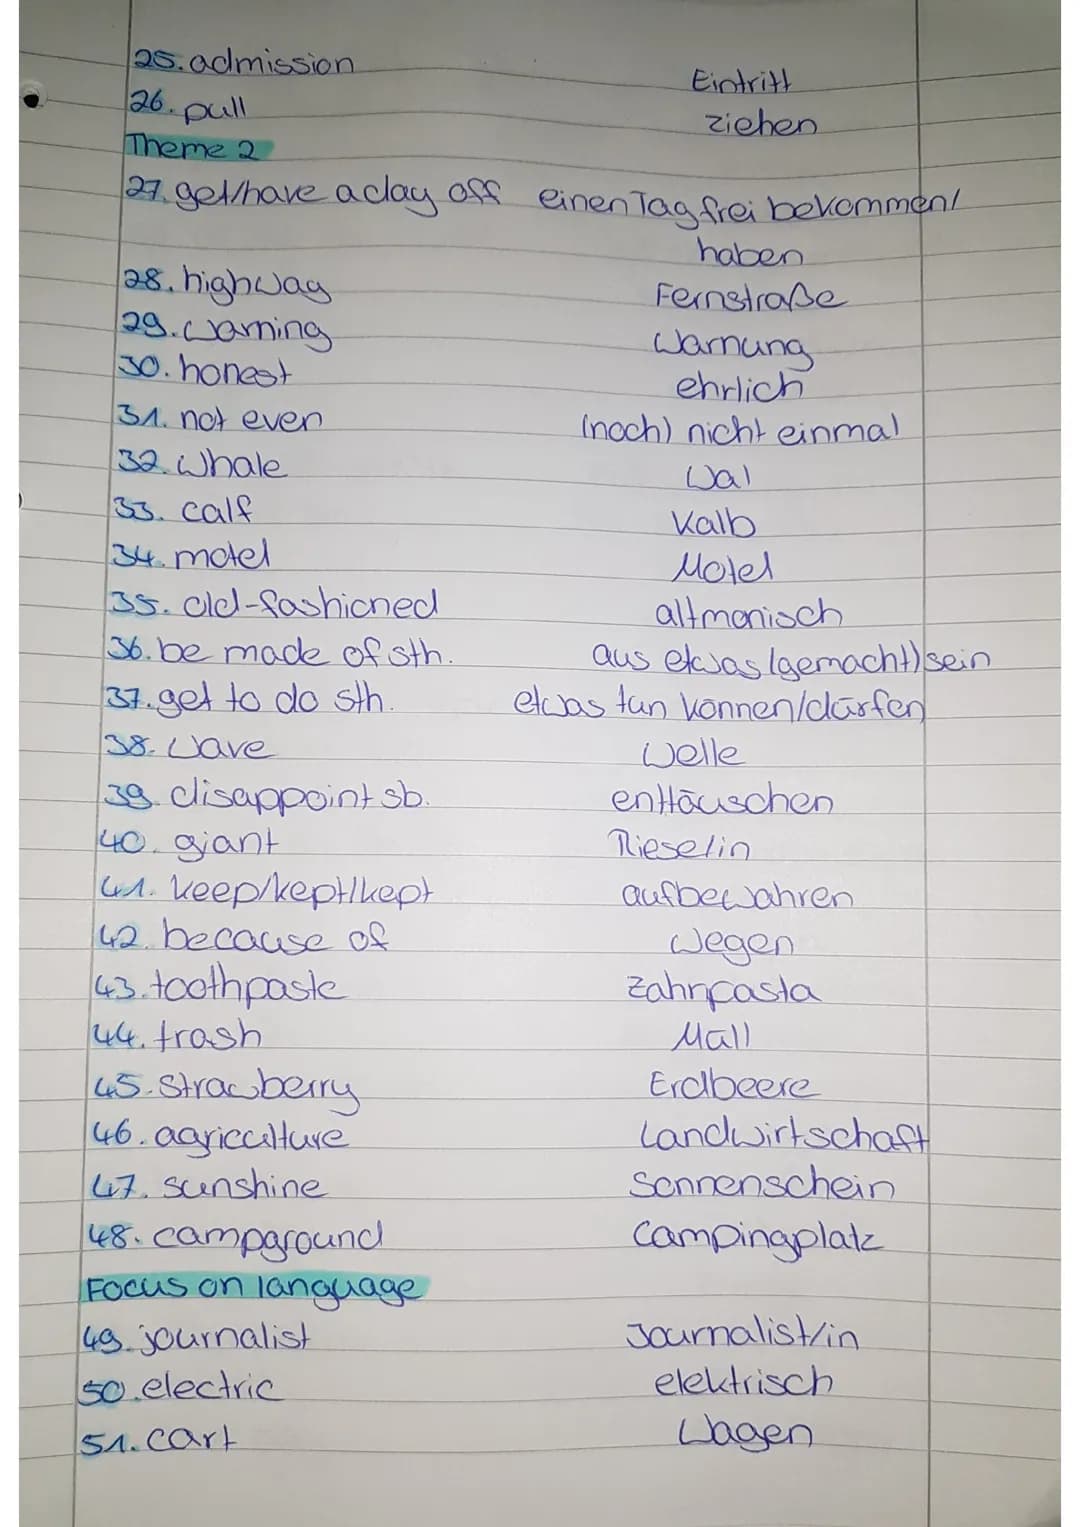 25. admission Eintritt
26. pull ziehen
Theme 2
27. get/have a day off einen Tag frei bekommen/
haben
28. highway Fernstraße
29. warning Warnung
30. honest ehrlich
31. not even (noch) nicht einmal
32. whale Wal
33. calf Kalb
34. motel Motel
35. old-fashioned altmonisch
36. be made of sth. aus etwas (gemacht) sein
37. get to do sth. etwas tun können/dürfen
38. wave Welle
39. disappoint sb. enttäuschen
40. giant Riese/in
41. keep/kept/kept aufbewahren
42. because of wegen
43. toothpaste Zahnpasta
44. trash Müll
45. strawberry Erdbeere
46. agriculture Landwirtschaft
47. sunshine Sonnenschein
48. campground Campingplatz
Focus on language
49. journalist Journalist/in
50. electric elektrisch
51. cart Wagen